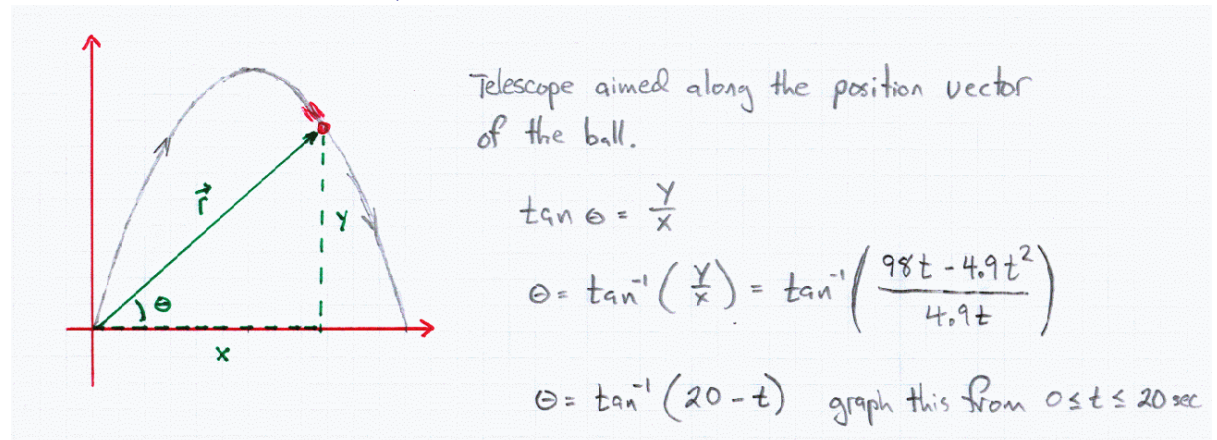 Telescope aimed along the position vector
of the ball.
r⃗
y
θ
x
tan θ = y/x
θ = tan⁻¹ ( y/x ) = tan⁻¹ ( (98t - 4.9t²) / 4.9t )
θ = tan⁻¹ (20 - t) graph this from 0 ≤ t ≤ 20 sec